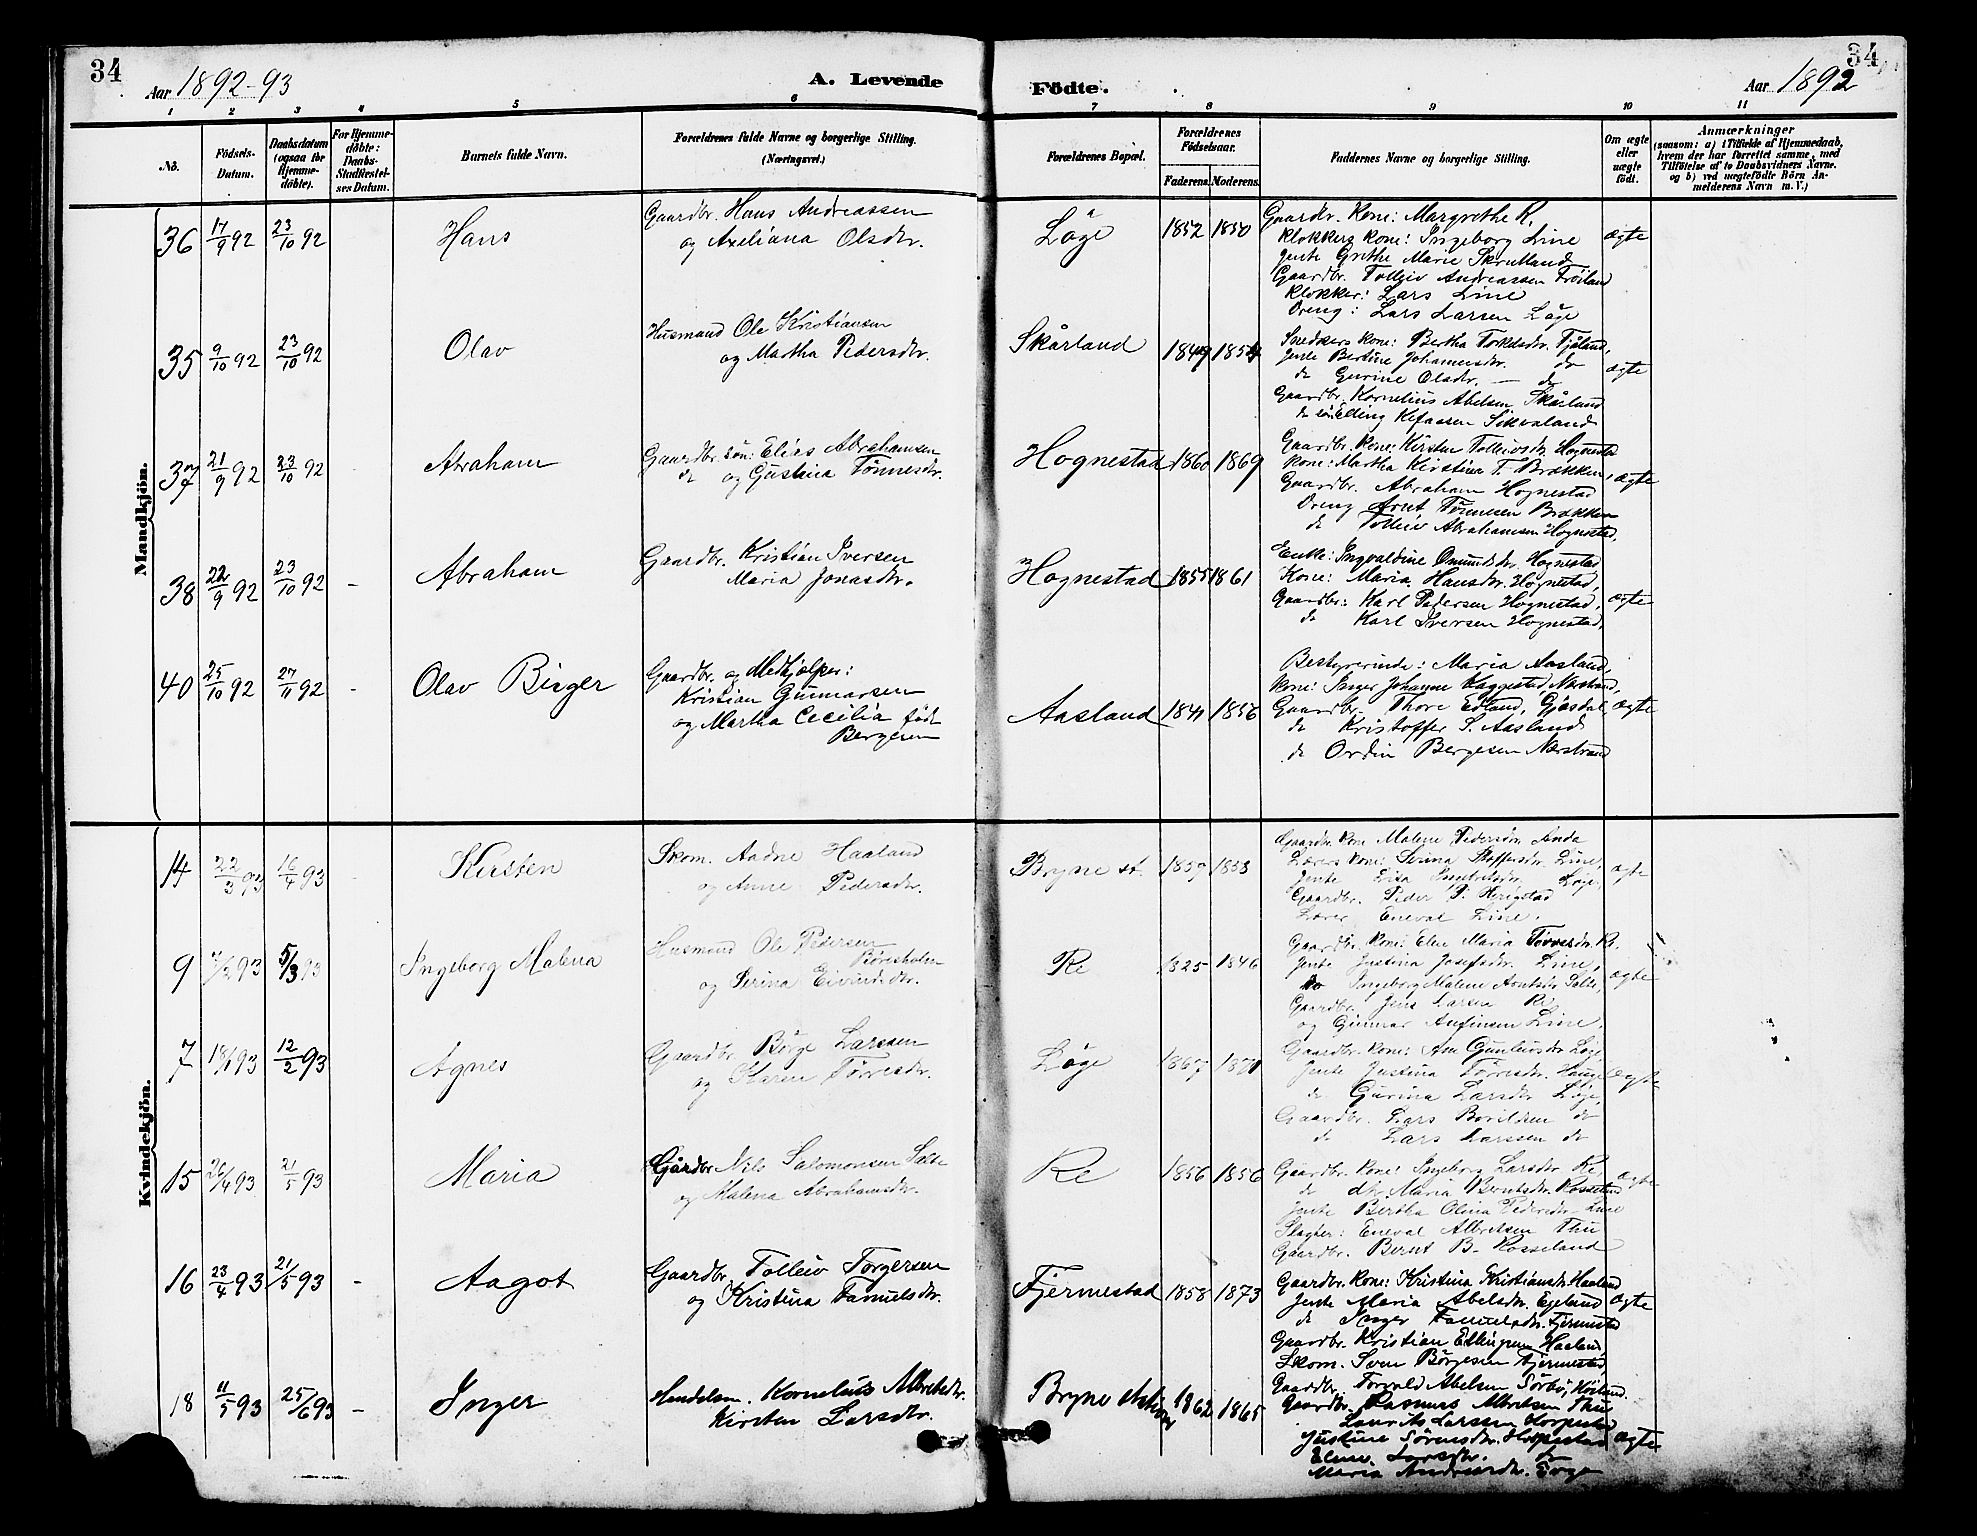 34
Aar 1892-93
A. Levende
Födte.
Aar 1892
34
1 2 3 4 5 6 7 8 9 10 11
No.
Födsels-Datum.
Daabsdatum (ogsaa for Hjemme-döbte).
For Hjemme-döbte: Daabs-Stadfæstel-ses Datum.
Barnets fulde Navn.
Forældrenes fulde Navne og borgerlige Stilling.
(Næringsvei.)
Forældrenes Bopæl.
Forældrenes Födselsaar.
Faderens. Moderens.
Faddernes Navne og borgerlig Stilling.
Om ægte eller uægte födt.
Anmærkninger
(saasom: a) i Tilfælde af Hjemmedaab, hvem der har forrettet samme, med Tilföielse af to Daabsvidners Navne. og b) ved uægtefödte Börn An-melderens Navn m. V.)
Mandkjön.
36 17/9 92 23/10 92 Hans
Gaardbr. Hans Andreassen
og Axeliana Olsdtr.
Løge 1852 1850
Gaardbr. Kone: Margrethe R.
Klokkers Kone: Ingeborg Line
Jente Grethe Marie
Gaardbr. Tolleiv Andreassen Frøiland
Klokker: Lars Line
Dreng: Lars Larsen Løge
ægte
35 9/10 92 23/10 92 Olav
Husmand Ole Kristiansen
og Martha Pedersdtr.
Skårland 1849 1854
Snedkers Kone: Bertha Torkelsdtr. Tjåland,
Jente Bertine Johannesdtr. do
do Gurine Olsdtr. — do
Gaardbr. Kornelius Abelsen Skårland
do søn Elling Kefassen Sikvaland
ægte
37 21/9 92 23/10 92 Abraham
Gaardbr. søn: Elias Abrahamsen
do og Gustina Tønnesdtr.
Hognestad 1860 1869
Gaardbr. Kone: Kirsten Tolleivsdtr. Hognestad
Kone: Martha Kirstina T. Brækken,
Gaardbr. Abraham Hognestad
Dreng Arnt Tønnesen Brækken
do Tolleiv Abrahamsen Hognestad,
ægte
38 22/9 92 23/10 92 - Abraham
Gaardbr. Kristian Iversen
Maria Jonasdtr.
Hognestad 1855 1861
Enke: Ingvaldine Omundsdtr. Hognestad
Kone: Maria Hansdtr. Hognestad,
Gaardbr: Karl Pedersen Hognestad,
do Karl Iversen Hognestad,
ægte
40 25/10 92 27/11 92 - Olav Birger
Gaardbr. og Medhjælper:
Kristian Gunnarsen
og Martha Cecilia født
Bergesen
Aasland 1841 1856
Bestyrerinde: Maria Aasland,
Kone: Inger Johanne Kaggestad, Nærstrand,
Gaardbr. Thore Edland, Gjesdal,
do Kristoffer S. Aasland
do Ordin Bergesen Nærstrand
ægte
Kvindekjön.
14 22/3 93 16/4 93 Kirsten
Skom. Aadne Haaland
og Anne Pedersdtr.
Bryne st. 1859 1853
Gaardbr. Kone Malene Pedersdtr.
Lærers Kone: Serina Line,
Jente Løge,
Gaardbr. Peder P. Herigstad
Lærer Eneval Line.
ægte
9 7/2 93 5/3 93 Ingeborg Malena
Husmand Ole Pedersen
og Serina Eivindsdtr.
Re 1825 1846
Gaardbr. Kone: Elen Maria Torresdtr. Re.
Jente Justina Josefsdtr. Line,
do Ingeborg Malene Salte,
Gaardbr. Jens Larsen Re
og Gunnar Aufinsen Line.
ægte
7 18/1 93 12/2 93 Agnes
Gaardbr Børge Larssen
og Karen Tørresdtr.
Løge 1867 1871
Gaardbr. Kone: Løge
Jente Justina Tørresdtr. Hauge
do Gurina Larsdtr Løge,
Gaardbr. Lars Borildsen do
do Lars Larssen do
ægte
15 26/4 93 21/5 93 Maria
Gårdbr. Nils Salomonsen Salte
og Malena Abrahamsdtr.
Re 1856 1856
Gaardbr. Kone: Ingeborg Larsdtr Re
do do, Maria Berntsdtr. Rosseland
Jente Bertha Olina Pedersdtr. Line
Slagter: Eneval Albretsen Thu
Gaardbr. Bernt B. Rosseland
ægte
16 23/4 93 21/5 93 - Aagot
Gaardbr. Tolleiv Torgersen
og Kristina Samuelsdtr.
Fjermestad 1858 1873
Gaardbr. Kone: Kristina Kristiansdtr. Haaland
Jente Maria Abelsdtr. Egeland
do Inger Samuelsdtr. Fjermestad
Gaardbr. Kristian Ellingsen Haaland
Skom. Sven Børgesen Fjermestad
Gaardbr. Torvald Abelsen Sørbø, Høiland.
ægte
18 11/5 93 25/6 93 - Inger
Handelsm. Kornelius Albretsen
Kirsten Larsdtr.
Bryne station 1862 1865
Gaardbr. Rasmus Albretsen Thu
Laurits Larssen
Justine Sørensdtr.
Eline Larsdtr. do
Maria Andreasdtr.
ægte